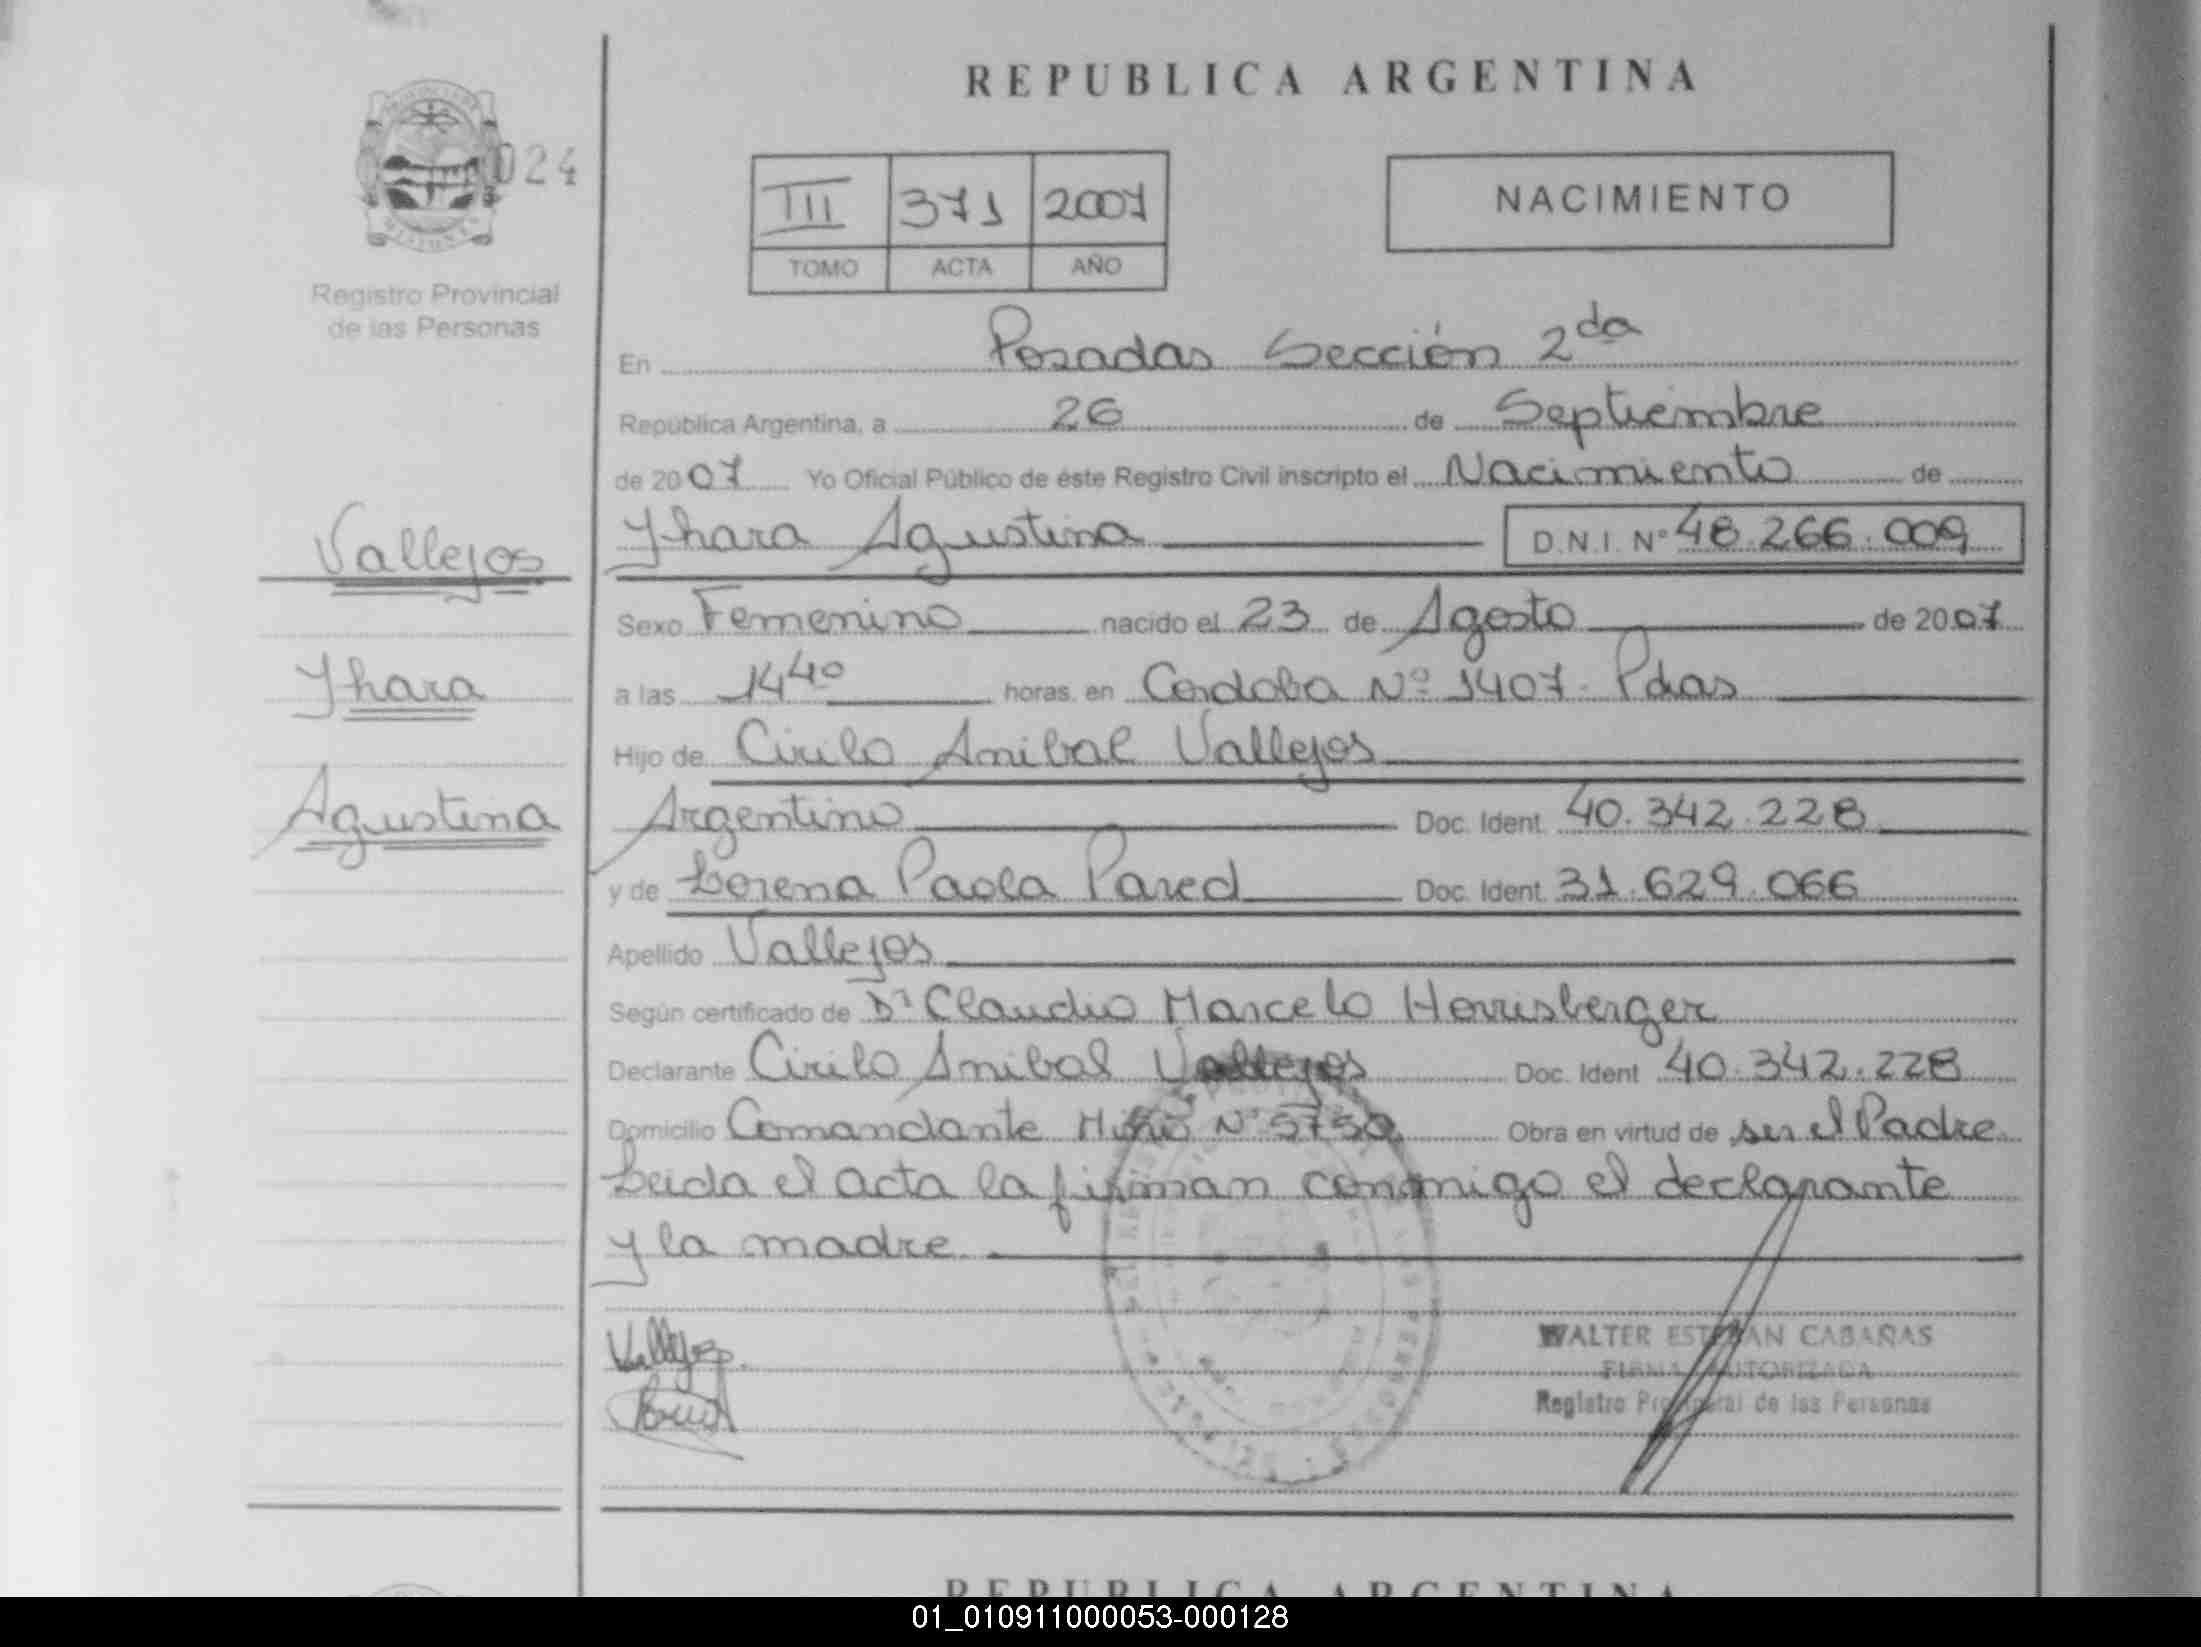 REPUBLICA ARGENTINA
024
III 371 2007
TOMO ACTA AÑO
NACIMIENTO
Registro Provincial
de las Personas
En Posadas Sección 2da
República Argentina, a 26 de Septiembre
de 2007 Yo Oficial Público de éste Registro Civil inscripto el Nacimiento de
Vallejos
Yhara Agustina D.N.I. Nº 48.266.009
Sexo Femenino nacido el 23 de Agosto de 2007
Yhara
a las 14 40 horas. en Cordoba Nº 1407. Pdas
Hijo de Cirilo Anibal Vallejos
Agustina
Argentino Doc. Ident. 40.342.228
y de Lorena Paola Pared Doc. Ident. 31.629.066
Apellido Vallejos
Según certificado de Dr Claudio Marcelo
Declarante Cirilo Anibal Vallejos Doc. Ident 40.342.228
Domicilio Comandante Nº Obra en virtud de ser el Padre
Leida el acta la firman conmigo el declarante
y la madre.
Vallejos.
WALTER ESTEBAN CABAÑAS
FIRMA AUTORIZADA
Registro Provincial de las Personas
REPUBLICA ARGENTINA
01_010911000053-000128